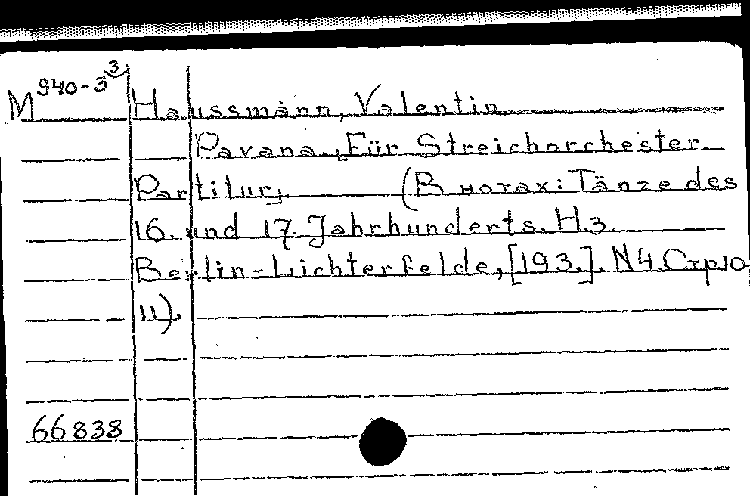 M 940-3³
Haussmann, Valentin
Pavana, Für Streichorchester.
Partitur, (В нотах: Tänze des
16. und 17. Jahrhunderts. H.3.
Berlin-Lichterfelde, [193.]. N4. Стр10
11).
66838